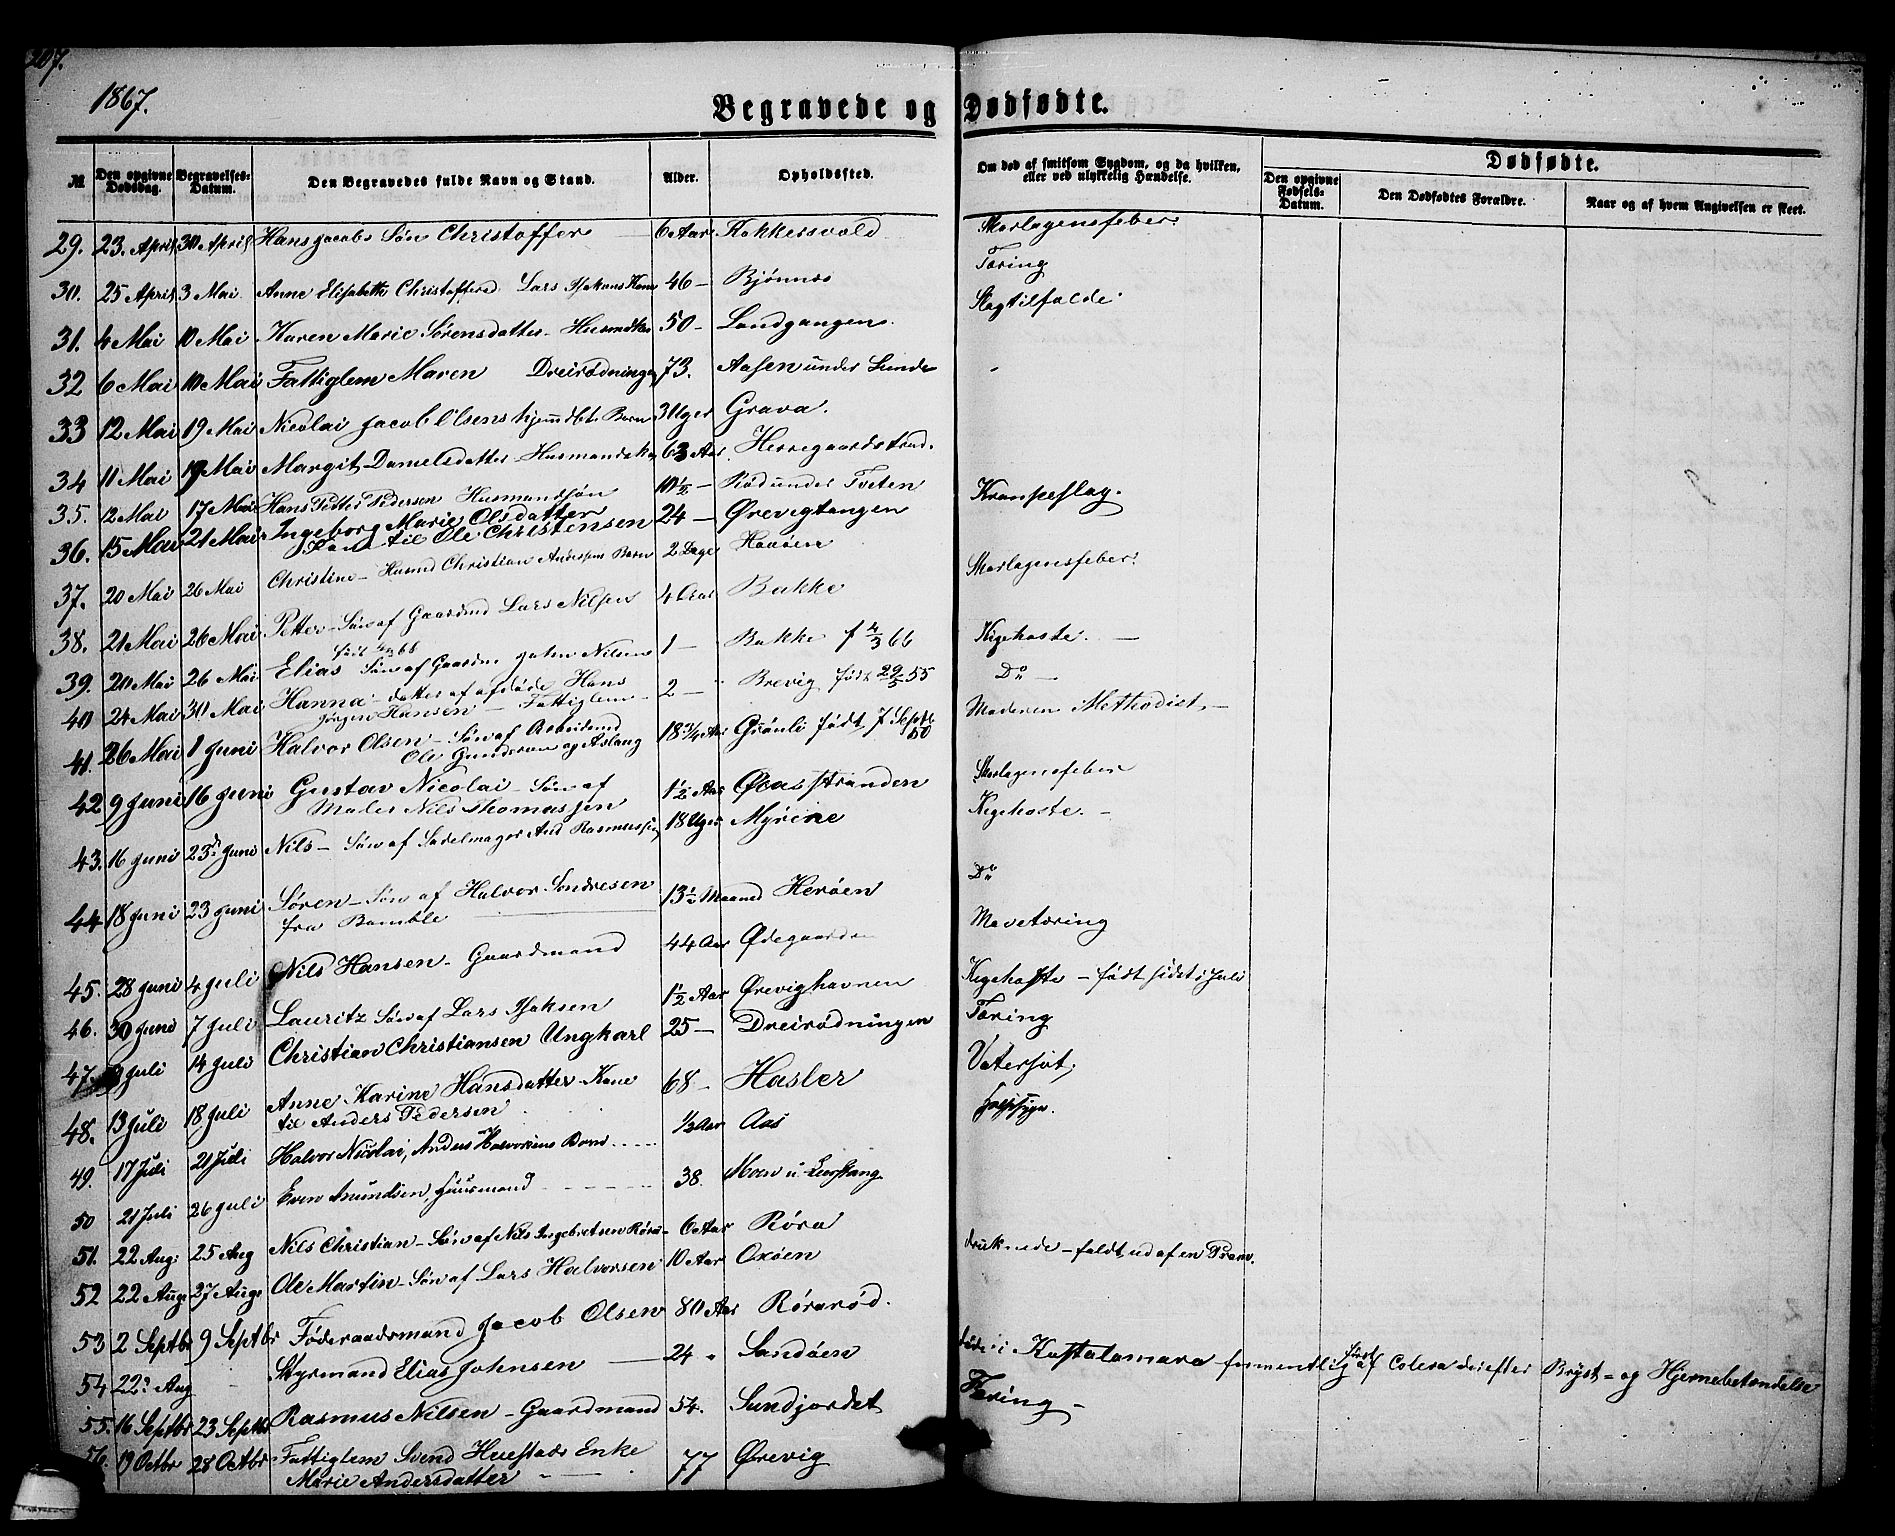 207.
1867.
Begravede og Dødfødte.
№ Den opgivne Dødsdag. Begravelses-Datum. Den Begravedes fulde Navn og Stand. Alder. Opholdssted. Om død af smitsom Sygdom, og da hvilken, eller ved ulykkelig Hændelse. Dødfødte.
Den opgivne Fødsels-Datum. Den Dødfødtes Forældre. Naar og af hvem Angivelsen er skeet.
29. 23. April 30 April Hans Jacobs Søn Christoffer 6 Aar Kokkersvold Skarlagensfeber.
30. 25 April 3 Mai Anne Elisabeth Christoffersd. Lars Isaksens Kone 46 — Bjønnes Tæring
31. 4 Mai 10 Mai Karen Marie Sørensdatter — 50 — Landgangen. Slagtilfælde.
32 6 Mai 10 Mai Fattiglem Maren Dreirødningen 73. Aasen under Sunde
33 12 Mai 19 Mai Nicolai Jacob Olsens Barn 3 Uger Grava.
34 11 Mai 19 Mai Margit Danielsdatter — 63 Aar Herregaardstrad.
35. 12 Mai 17 Mai Hans Petter Pedersen Husmandssøn 10½ — Rød under Tveten Krampeslag.
36. 15 Mai 21 Mai Ingeborg Marie Olsdatter 24 — Ørevigtangen
Kone til Ole Christensen
37. 20 Mai 26 Mai Christine — Husmd Christian Andersens Barn 2 Dage Haaøen
38. 21 Mai 26 Mai Petter — Søn af Gaardmd Lars Nilsen 4 Aar Bakke Skarlagensfeber.
39. 20 Mai 26 Mai Elias Søn af Nilsen 1 — Bakke f 4/3 66 Kigehoste. —
40 24 Mai 30 Mai Hanna — datter af afdøde Hans 2 — Brevig født 29/5 55 Do —
Jørgen Hansen — Fattiglem —
41. 26 Mai 1 Juni Halvor Olsen — Søn af Arbeidsmd 18 ¾ Aar Grønli født 7 Septb. 50 Moderen Methodist, —
Ole Gundersen og Aslaug
42 9 Juni 16 Juni Gustav Nicolai — Søn af 1½ Aar Øasstranden Skarlagensfeber
Maler Nils Thomassen
43. 16 Juni 23de Juni Nils — Søn af Sadelmager And Rasmussen 18 Uger Myrene Kigehoste. —
44 18 Juni 23 Juni Søren — Søn af Halvor Sondresen 13½ Maaned Herøen Do
fra Bamble
45. 28 Juni 4 Juli Nils Hansen — Gaardmand 44 Aar Ødegaarden Mavetæring
46. 30 Juni 7 Juli Lauritz Søn af Lars Isaksen 1½ Aar Ørevighavnen Kigehoste — født sidst i Juli
47. 9 Juli 14 Juli Christian Christiansen Ungkarl 25 — Dreirødningen Tæring
48. 13 Juli 18 Juli Anne Karine Hansdatter Kone 68 — Hasler Vatersot,
til Anders Pedersen
49. 17 Juli 21 Juli Halvor Nicolai, Anders Halvorsens Barn ½ Aar Aas
50 21 Juli 26 Juli Even Amundsen, Huusmand 38. Moen u.
51. 22 Aug: 25 Aug Nils Christian — Søn af Nils Ingebretsen Røra — 6 Aar Røra
52 22 Aug 27 Aug Ole Martin — Søn af Lars Halvorsen 10 Aar Oxøen druknede — faldt ud af en Pram.
53 2 Septbr 9 Septbr Føderaadsmand Jacob Olsen 80 Aar Rørarød.
54 22de Aug Styrmand Elias Johnsen 24 „ Sandøen døde i Kastalamara — formentlig først af Colera derefter Bryst- og Hjernebetændelse
55. 16 Septbr 23 Septbr Rasmus Nilsen — Gaardmand 54. Sundjordet Tæring —
56. 19 Octbr 28 Octbr Fattiglem Svend Huestads Enke 77 Ørevig
Marie Andersdatter